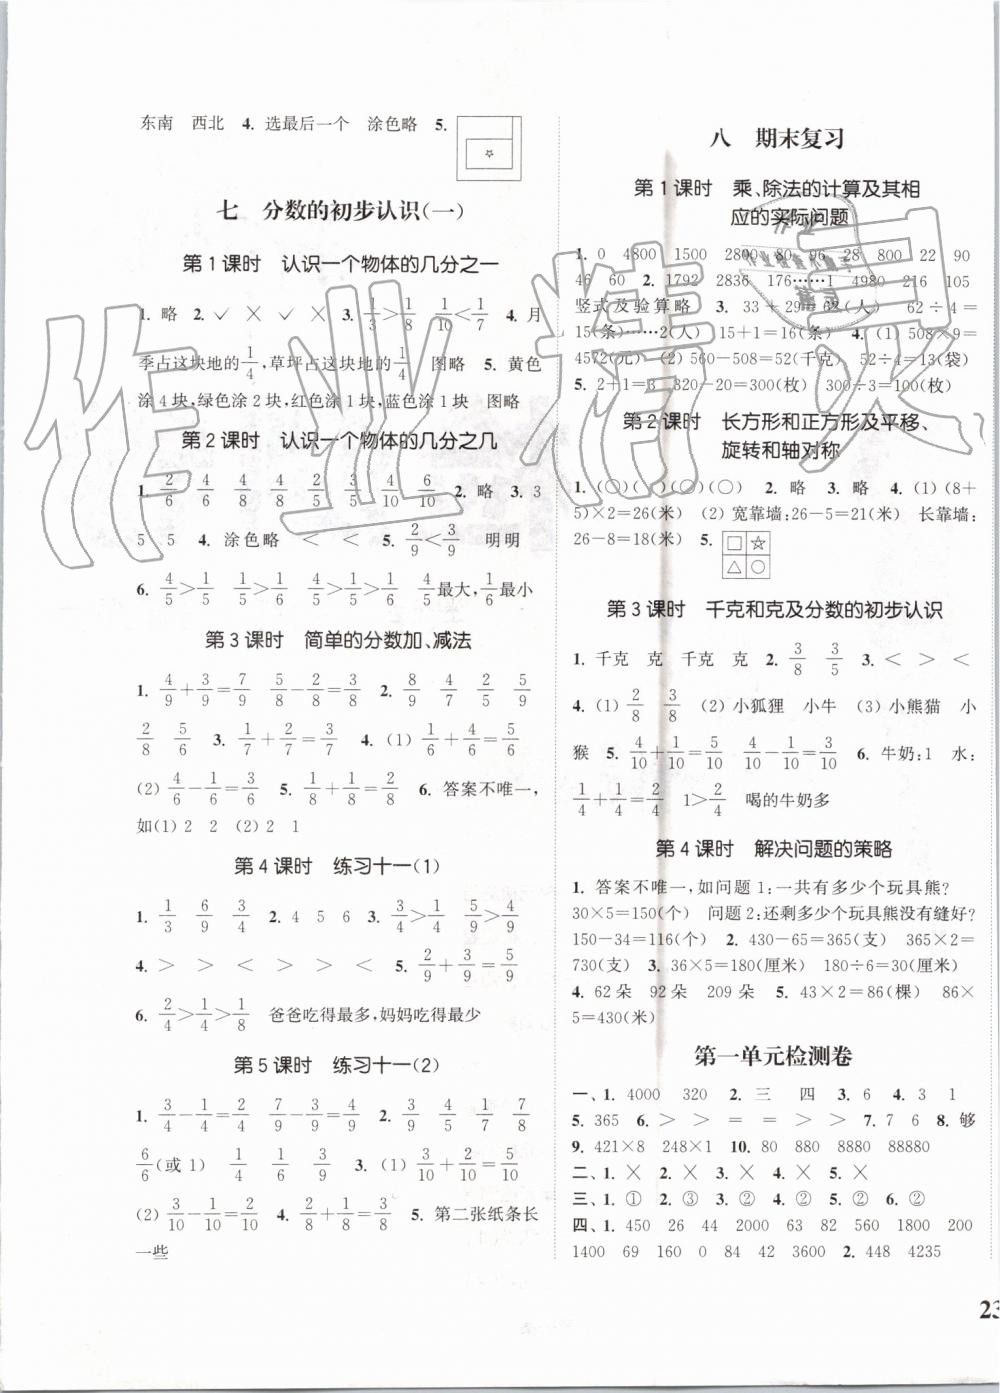 东南　西北　4. 选最后一个　涂色略　5.
七　分数的初步认识(一)
第 1 课时　认识一个物体的几分之一
1. 略　2. ✓　×　✓　×　3. 1/3>1/8　1/10<1/7　4. 月
季占这块地的1/4,草坪占这块地的1/4　图略　5. 黄色
涂 4 块,绿色涂 2 块,红色涂 1 块,蓝色涂 1 块　图略
第 2 课时　认识一个物体的几分之几
1. 2/6　4/6　4/8　4/8　2/5　3/5　4/10　6/10　2. 略　3. 3
5　5　4. 涂色略　<　<　<　5. 2/9<3/9　明明
6. 4/5>1/5　1/5>1/6　1/5>1/6　4/5最大,1/6最小
第 3 课时　简单的分数加、减法
1. 4/9+3/9=7/9　5/8-2/8=3/8　2. 8/9　4/7　2/5　5/9
2/8　5/6　3. 1/7+2/7=3/7　4. (1) 1/6+4/6=5/6
(2) 4/6-1/6=3/6　5. 1/8+1/8=2/8　6. 答案不唯一,
如(1) 2　2　(2) 2　1
第 4 课时　练习十一(1)
1. 1/3　6/9　3/4　2. 4　5　6　3. 3/4>1/4　5/9>4/9
4. >　>　<　>　>　<　5. 2/9+3/9=5/9
6. 2/4>1/4>1/8　爸爸吃得最多,妈妈吃得最少
第 5 课时　练习十一(2)
1. 3/4-1/4=2/4　7/9-3/9=4/9　2. 3/9　4/5　1/7　7/8
6/6(或 1)　1/4　1/8　3. (1) 3/10+2/10=5/10
(2) 3/10-1/10=2/10　4. 2/8+1/8=3/8　5. 第二张纸条长
一些
八　期末复习
第 1 课时　乘、除法的计算及其相
应的实际问题
1. 0　4800　1500　2800　80　90　28　800　22　90
46　60　2. 1792　2836　176……1　4980　216　126
竖式及验算略　3. 33+29=62(人)　62÷4=
15(条)……2(人)　15+1=16(条)　4. (1) 508×9=
4572(元)　(2) 560-508=52(千克)　52÷4=13(袋)
5. 2+1=3　320-20=300(枚)　300÷3=100(枚)
第 2 课时　长方形和正方形及平移、
旋转和轴对称
1. (○)(　)(○)(○)　2. 略　3. 略　4. (1) (8+
5)×2=26(米)　(2) 宽靠墙:26-5=21(米)　长靠墙:
26-8=18(米)　5. □ ☆
△ ○
第 3 课时　千克和克及分数的初步认识
1. 千克　克　千克　克　2. 3/8　3/5　3. <　>　<　<
4. (1) 2/8　3/8　(2) 小狐狸　小牛　(3) 小熊猫　小
猴　5. 4/10+1/10=5/10　4/10-1/10=3/10　6. 牛奶:1　水:
1/4+1/4=2/4　1>2/4　喝的牛奶多
第 4 课时　解决问题的策略
1. 答案不唯一,如问题 1:一共有多少个玩具熊?
30×5=150(个)　问题 2:还剩多少个玩具熊没有缝好?
150-34=116(个)　2. 430-65=365(支)　365×2=
730(支)　3. 36×5=180(厘米)　180÷6=30(厘米)
4. 62 朵　92 朵　209 朵　5. 43×2=86(棵)　86×
5=430(米)
第一单元检测卷
一、1. 4000　320　2. 三　四　3. 6　4. 3　1
5. 365　6. >　>　=　=　>　>　7. 7　6　8. 够
9. 421×8　248×1　10. 80　880　8880　88880
二、1. ×　2. ×　3. ×　4. ×　5. ×
三、1. ①　2. ③　3. ②　4. ②　5. ②　6. ②
四、1. 450　26　44　2000　63　82　560　1800　200
1400　69　160　0　84　42　3600　2. 448　4235
23
作业精灵